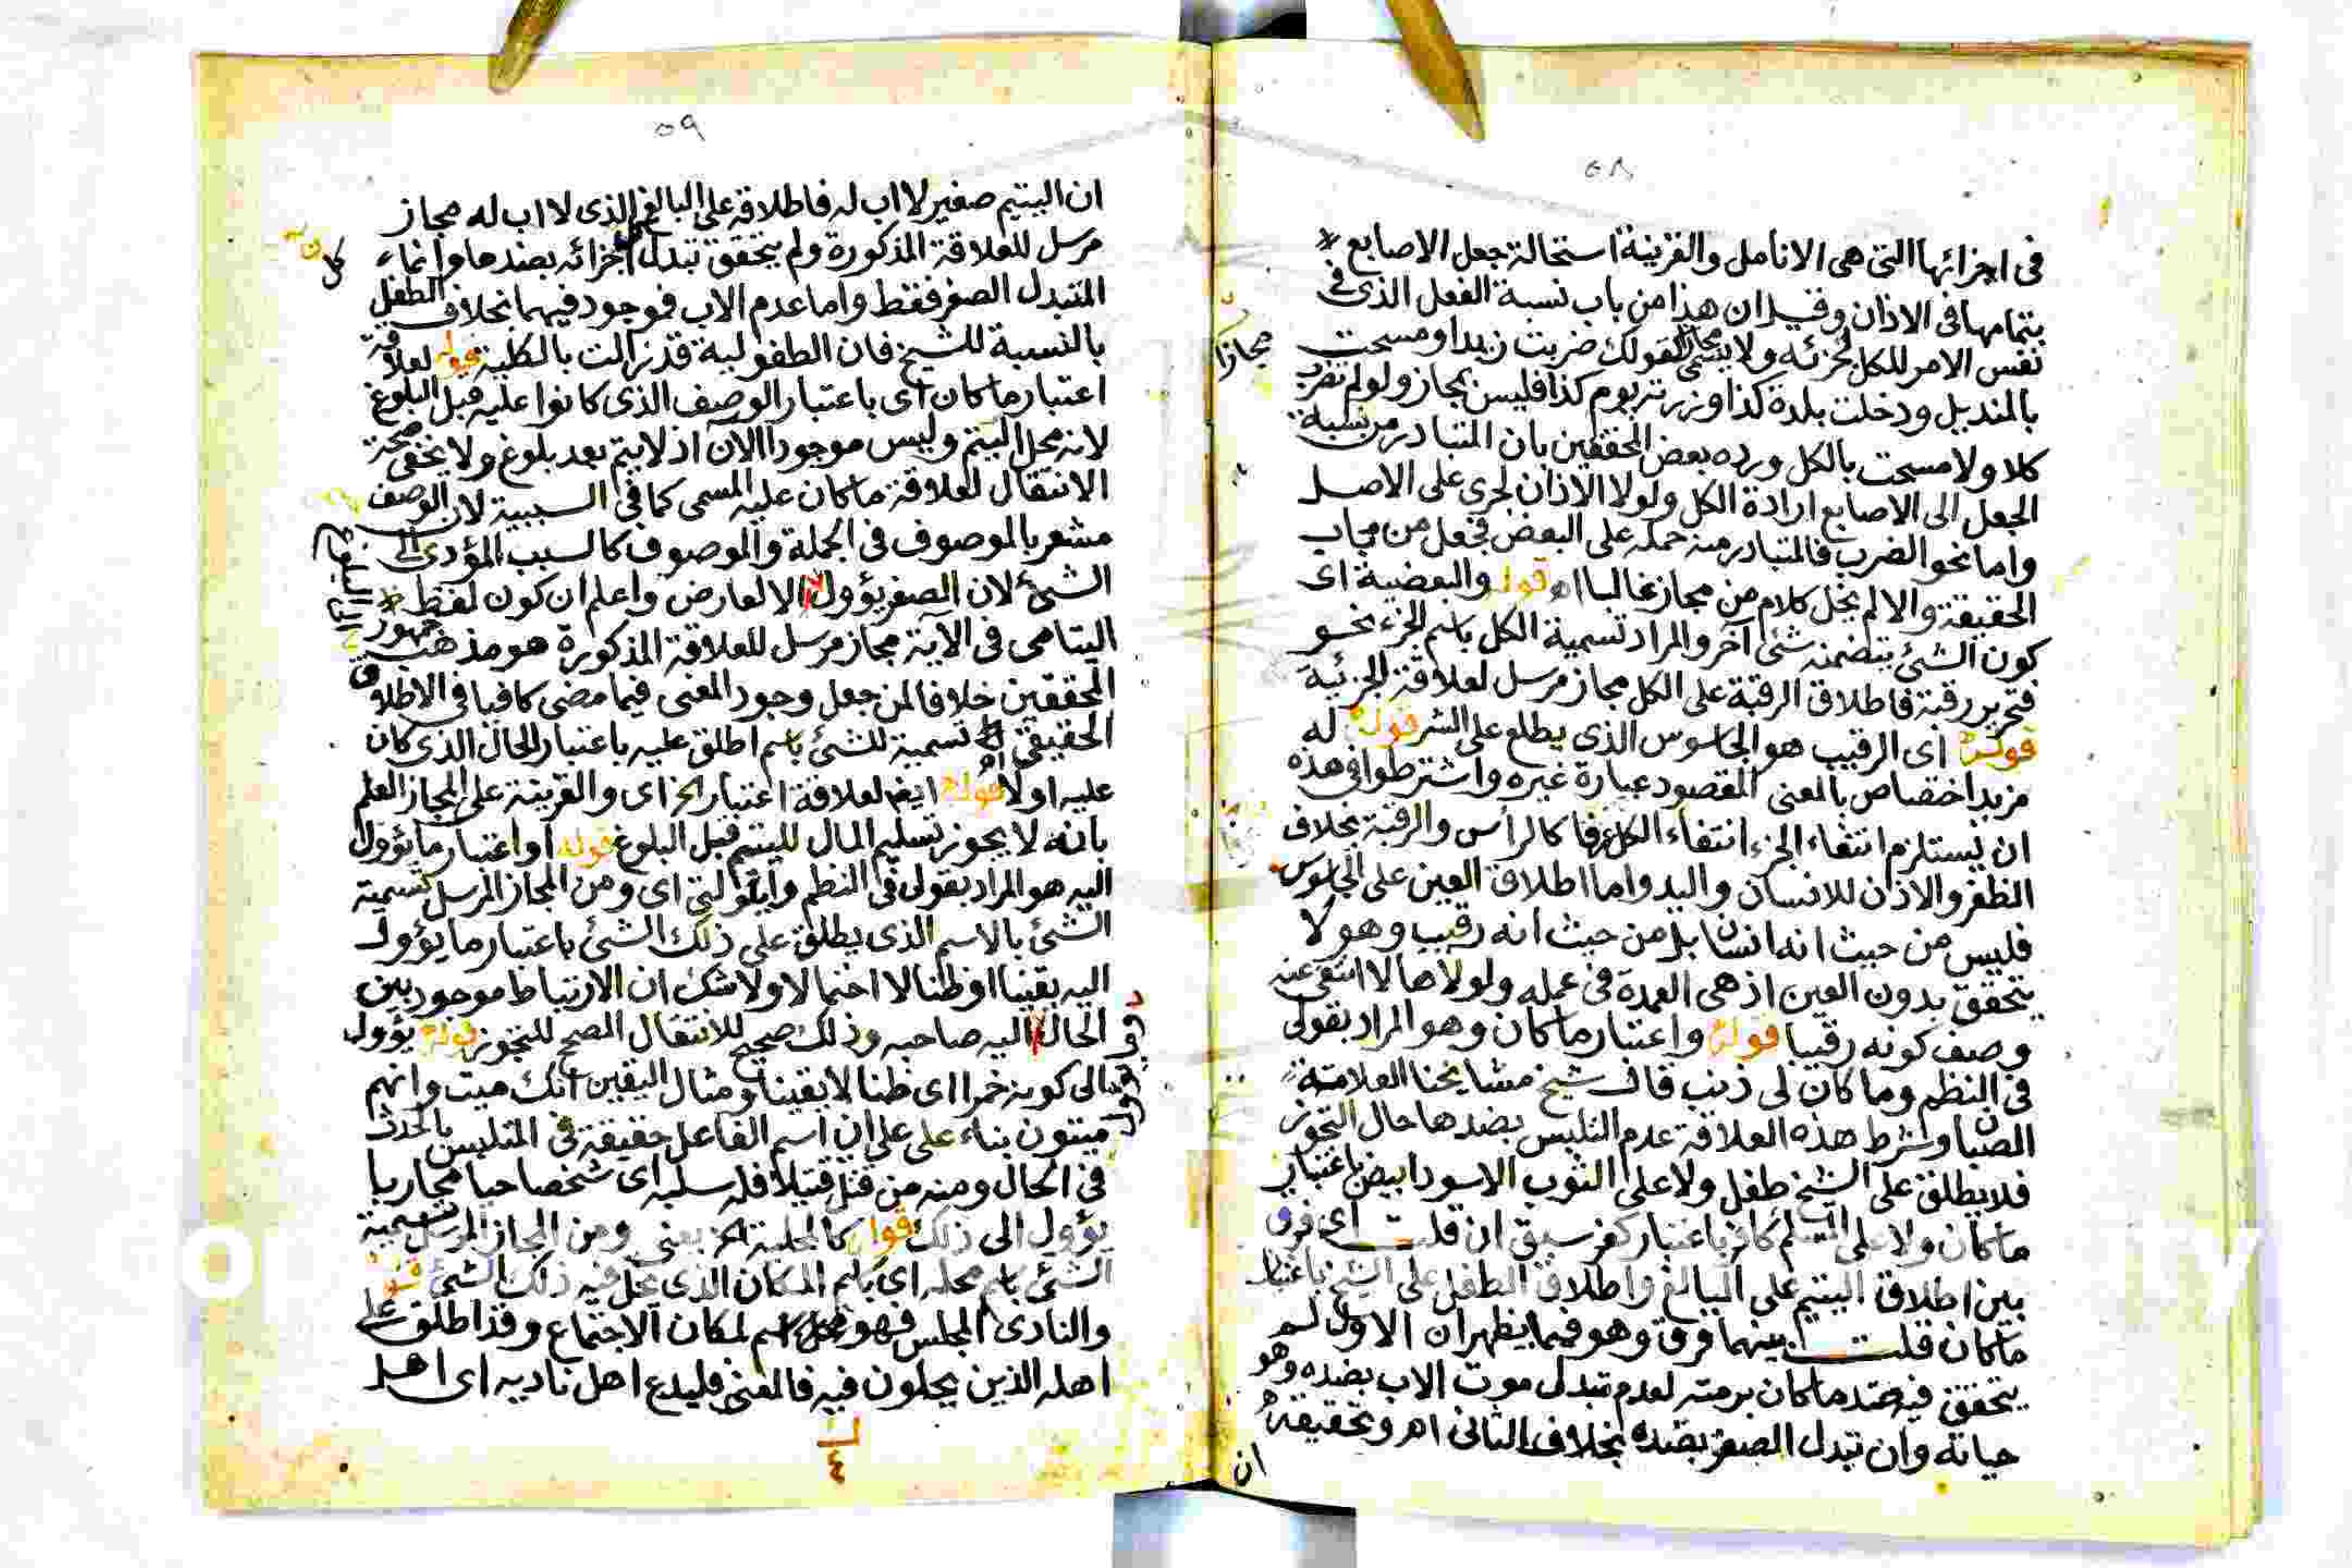 ٥٨
في اجزائها التى هى الانامل والقرينة استحالة جعل الاصابع
بتمامها فى الاذان وقيل ان هذا من باب نسبة الفعل الذى فى
نفس الامر للكل لجزئه ولا يسمى مجازا كقولك ضربت زيدا ومسحت
مجازا
بالمنديل ودخلت بلدة كذا وزرته يوم كذا فليس بمجاز ولو لم تضرب
كلا ولا مسحت بالكل ورده بعض المحققين بان المتبادر من نسبة
الجعل الى الاصابع ارادة الكل ولولا الاذان لجرى على الاصل
واما نحو الضرب فالمتبادر منه حمله على البعض فجعل من مجاب
الحقيقة والا لم يخل كلام من مجاز غالبا اه قوله والبعضية اى
كون الشئ يتضمنه شئ آخر والمراد تسمية الكل باسم الجزء نحو
فتحرير رقبة فاطلاق الرقبة على الكل مجاز مرسل لعلاقة الجزئية
قوله اى الرقيب هو الجاسوس الذى يطلع على الشر قوله له
مزيد اختصاص بالمعنى المقصود عبارة غيره واشترطوا فى هذه
ان يستلزم انتفاء الجزء انتفاء الكل عرفا كالراس والرقبة بخلاف
الظفر والاذن للانسان واليد واما اطلاق العين على الجاسوس
فليس من حيث انه انسان بل من حيث انه رقيب وهو لا
يتحقق بدون العين اذ هى العمدة فى عمله ولولاها لانتفى عنه
وصف كونه رقيبا قوله واعتبار ما كان وهو المراد بقولى
فى النظم وما كان لى ذنب قال شيخ مشايخنا العلامة
الصبان وشرط هذه العلاقة عدم التلبس بضدها حال التجوز
فلا يطلق على الشيخ طفل ولا على الثوب الاسود ابيض باعتبار
ما كان ولا على المسلم كافر باعتبار كفر سبق ان قلت اى فرق
بين اطلاق اليتيم على البالغ واطلاق الطفل على الشيخ باعتبار
ما كان قلت بينهما فرق وهو فيما يظهر ان الاول لم
يتحقق فيه ضد ما كان برمته لعدم تبدل موت الاب بضده وهو
حياته وان تبدل الصغر بضده بخلاف الثانى اهر وتحقيقه
ان
٥٩
ان اليتيم صغير لا اب له فاطلاقه على البالغ الذى لا اب له مجاز
مرسل للعلاقة المذكورة ولم يتحقق تبدل اجزائه بضدها وانما
كل
المتبدل الصغر فقط واما عدم الاب فموجود فيهما بخلاف الطفل
بالنسبة للشيخ فان الطفولية قد زالت بالكلية قوله لعلاقة
اعتبار ما كان اى باعتبار الوصف الذى كانوا عليه قبل البلوغ
لانه محل اليتم وليس موجودا الان اذ لا يتم بعد بلوغ ولا يخفى صحة
الانتقال لعلاقة ما كان عليه المسمى كما فى السببية لان الوصف
مشعر بالموصوف فى الجملة والموصوف كالسبب المؤدى الى
الشئ لان الصغر يؤول الا لعارض واعلم ان كون لفظ
اليتامى فى الآية مجاز مرسل للعلاقة المذكورة هو مذهب جمهور
المحققين خلافا لمن جعل وجود المعنى فيما مضى كافيا فى الاطلاق
الحقيقى تسمية للشئ باسم اطلق عليه باعتبار الحال الذى كان
عليه اولا اه قوله ايضا لعلاقة اعتبار الخ اى والقرينة على المجاز العلم
بانه لا يجوز تسليم المال لليتيم قبل البلوغ قوله او اعتبار ما يؤول
اليه هو المراد بقولى فى النظم اى ومن المجاز المرسل تسمية
الشئ بالاسم الذى يطلق على ذلك الشئ باعتبار ما يؤول
اليه يقينا او ظنا لا احتمالا ولا شك ان الارتباط موجود بين
الحال اليه صاحبه وذلك صحيح للانتقال المصحح للتجوز قوله يؤول
الى كونه خمرا اى ظنا لا يقينا ومثال اليقين انك ميت وانهم
ميتون بناء على على ان اسم الفاعل حقيقة فى المتلبس بالحدث
فى الحال ومنه من قتل قتيلا فله سلبه اى شخصا حيا محاربا
يؤول الى ذلك قوله كالمحلية الخ يعنى ومن المجاز المرسل تسمية
الشئ باسم محله اى باسم المكان الذى يحل فيه ذلك الشئ قوله
والنادى المجلس فهو اسم لمكان الاجتماع وقد اطلق على
اهله الذين يحلون فيه فالمعنى فليدع اهل ناديه اى اهل
٤